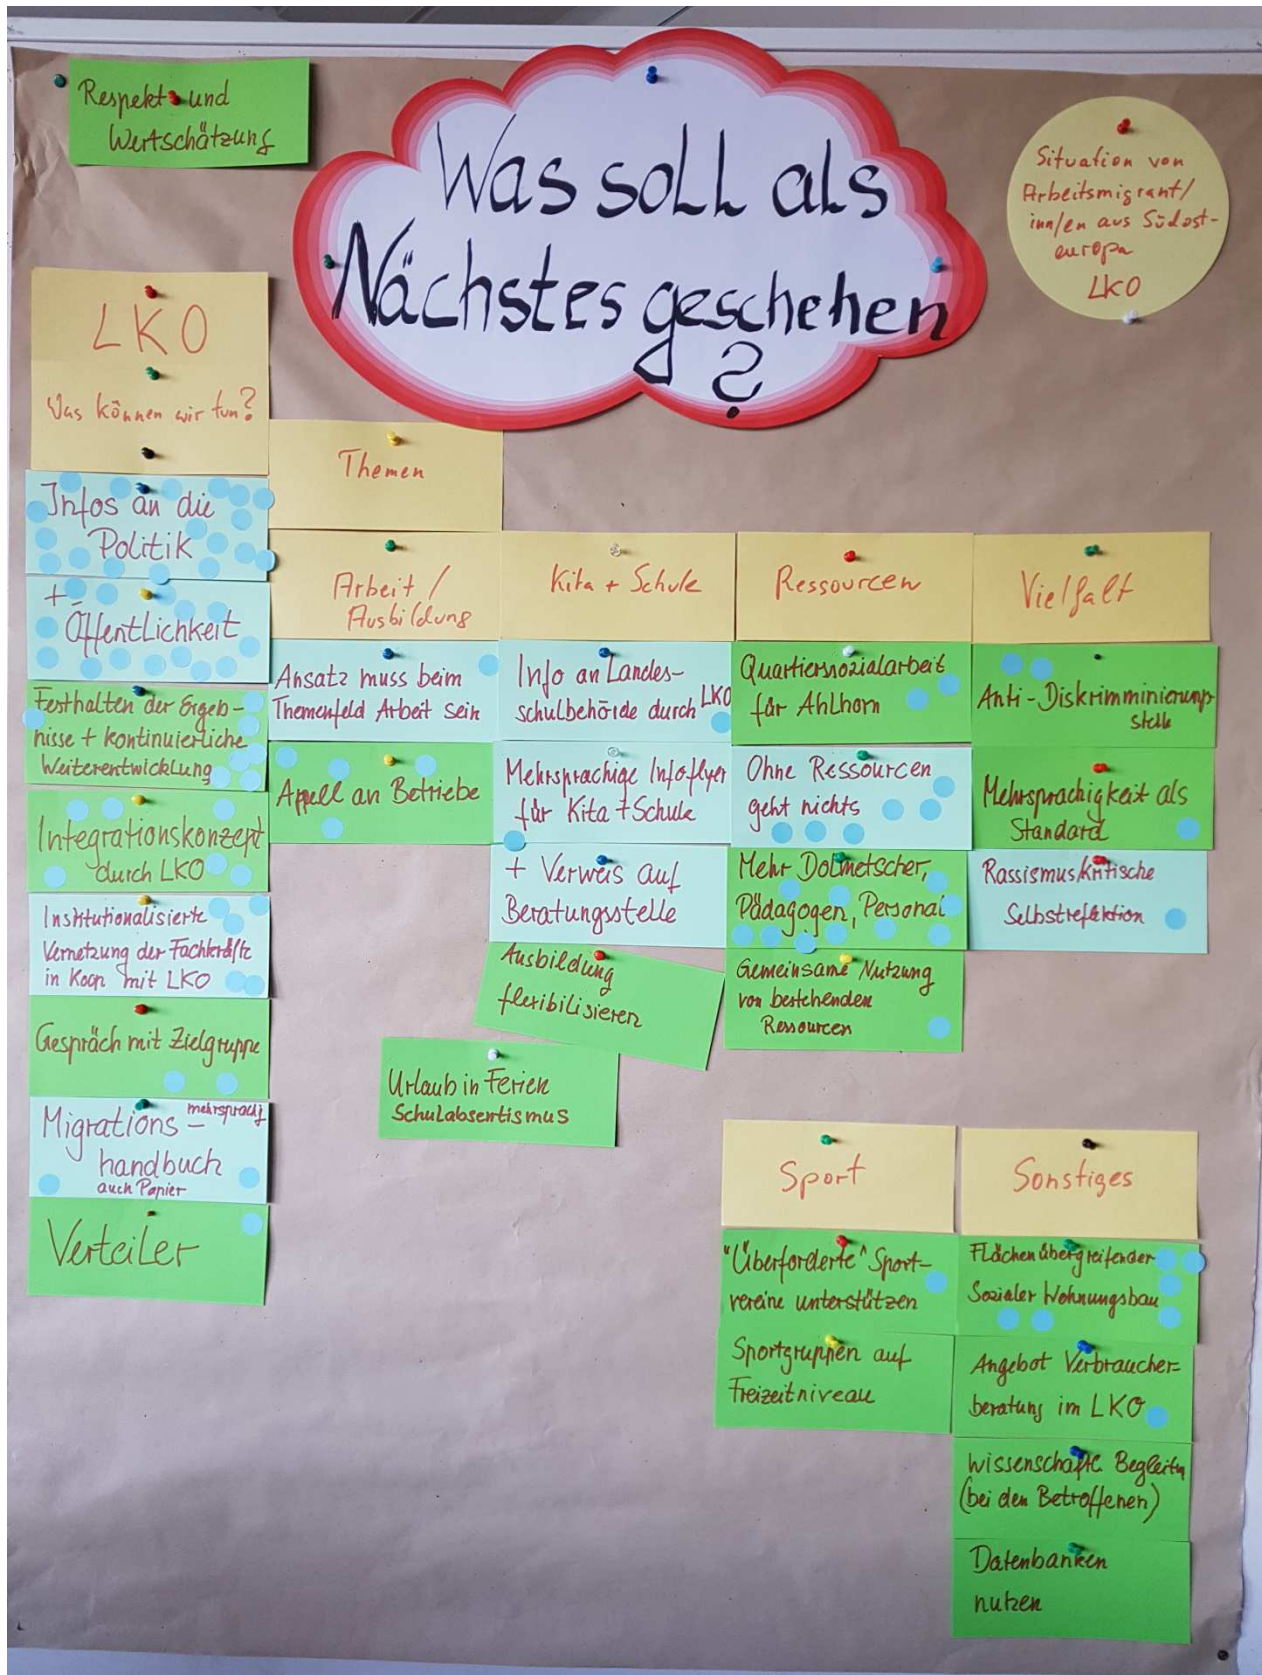 Respekt und
Wertschätzung
Was soll als
Nächstes geschehen
?
Situation von
Arbeitsmigrant/
inn/en aus Südost-
europa
LKO
LKO
Was können wir tun?
Infos an die
Politik
+
Öffentlichkeit
Festhalten der Ergeb-
nisse + kontinuierliche
Weiterentwicklung
Integrationskonzept
durch LKO
Institutionalisierte
Vernetzung der Fachkräfte
in Koop mit LKO
Gespräch mit Zielgruppe
Migrations- mehrsprachig
handbuch
auch Papier
Verteiler
Themen
Arbeit /
Ausbildung
Ansatz muss beim
Themenfeld Arbeit sein
Appell an Betriebe
Kita + Schule
Info an Landes-
schulbehörde durch LKO
Mehrsprachige Infoflyer
für Kita + Schule
+ Verweis auf
Beratungsstelle
Ausbildung
flexibilisieren
Urlaub in Ferien
Schulabsentismus
Ressourcen
Quartierssozialarbeit
für Ahlhorn
Ohne Ressourcen
geht nichts
Mehr Dolmetscher,
Pädagogen, Personal
Gemeinsame Nutzung
von bestehenden
Ressourcen
Vielfalt
Anti-Diskrimminierungs
stelle
Mehrsprachigkeit als
Standard
Rassismuskritische
Selbstreflektion
Sport
"Überforderte" Sport-
vereine unterstützen
Sportgruppen auf
Freizeitniveau
Sonstiges
Flächenübergreifender
Sozialer Wohnungsbau
Angebot Verbraucher=
beratung im LKO
Wissenschaftl. Begleitu
(bei den Betroffenen)
Datenbanken
nutzen